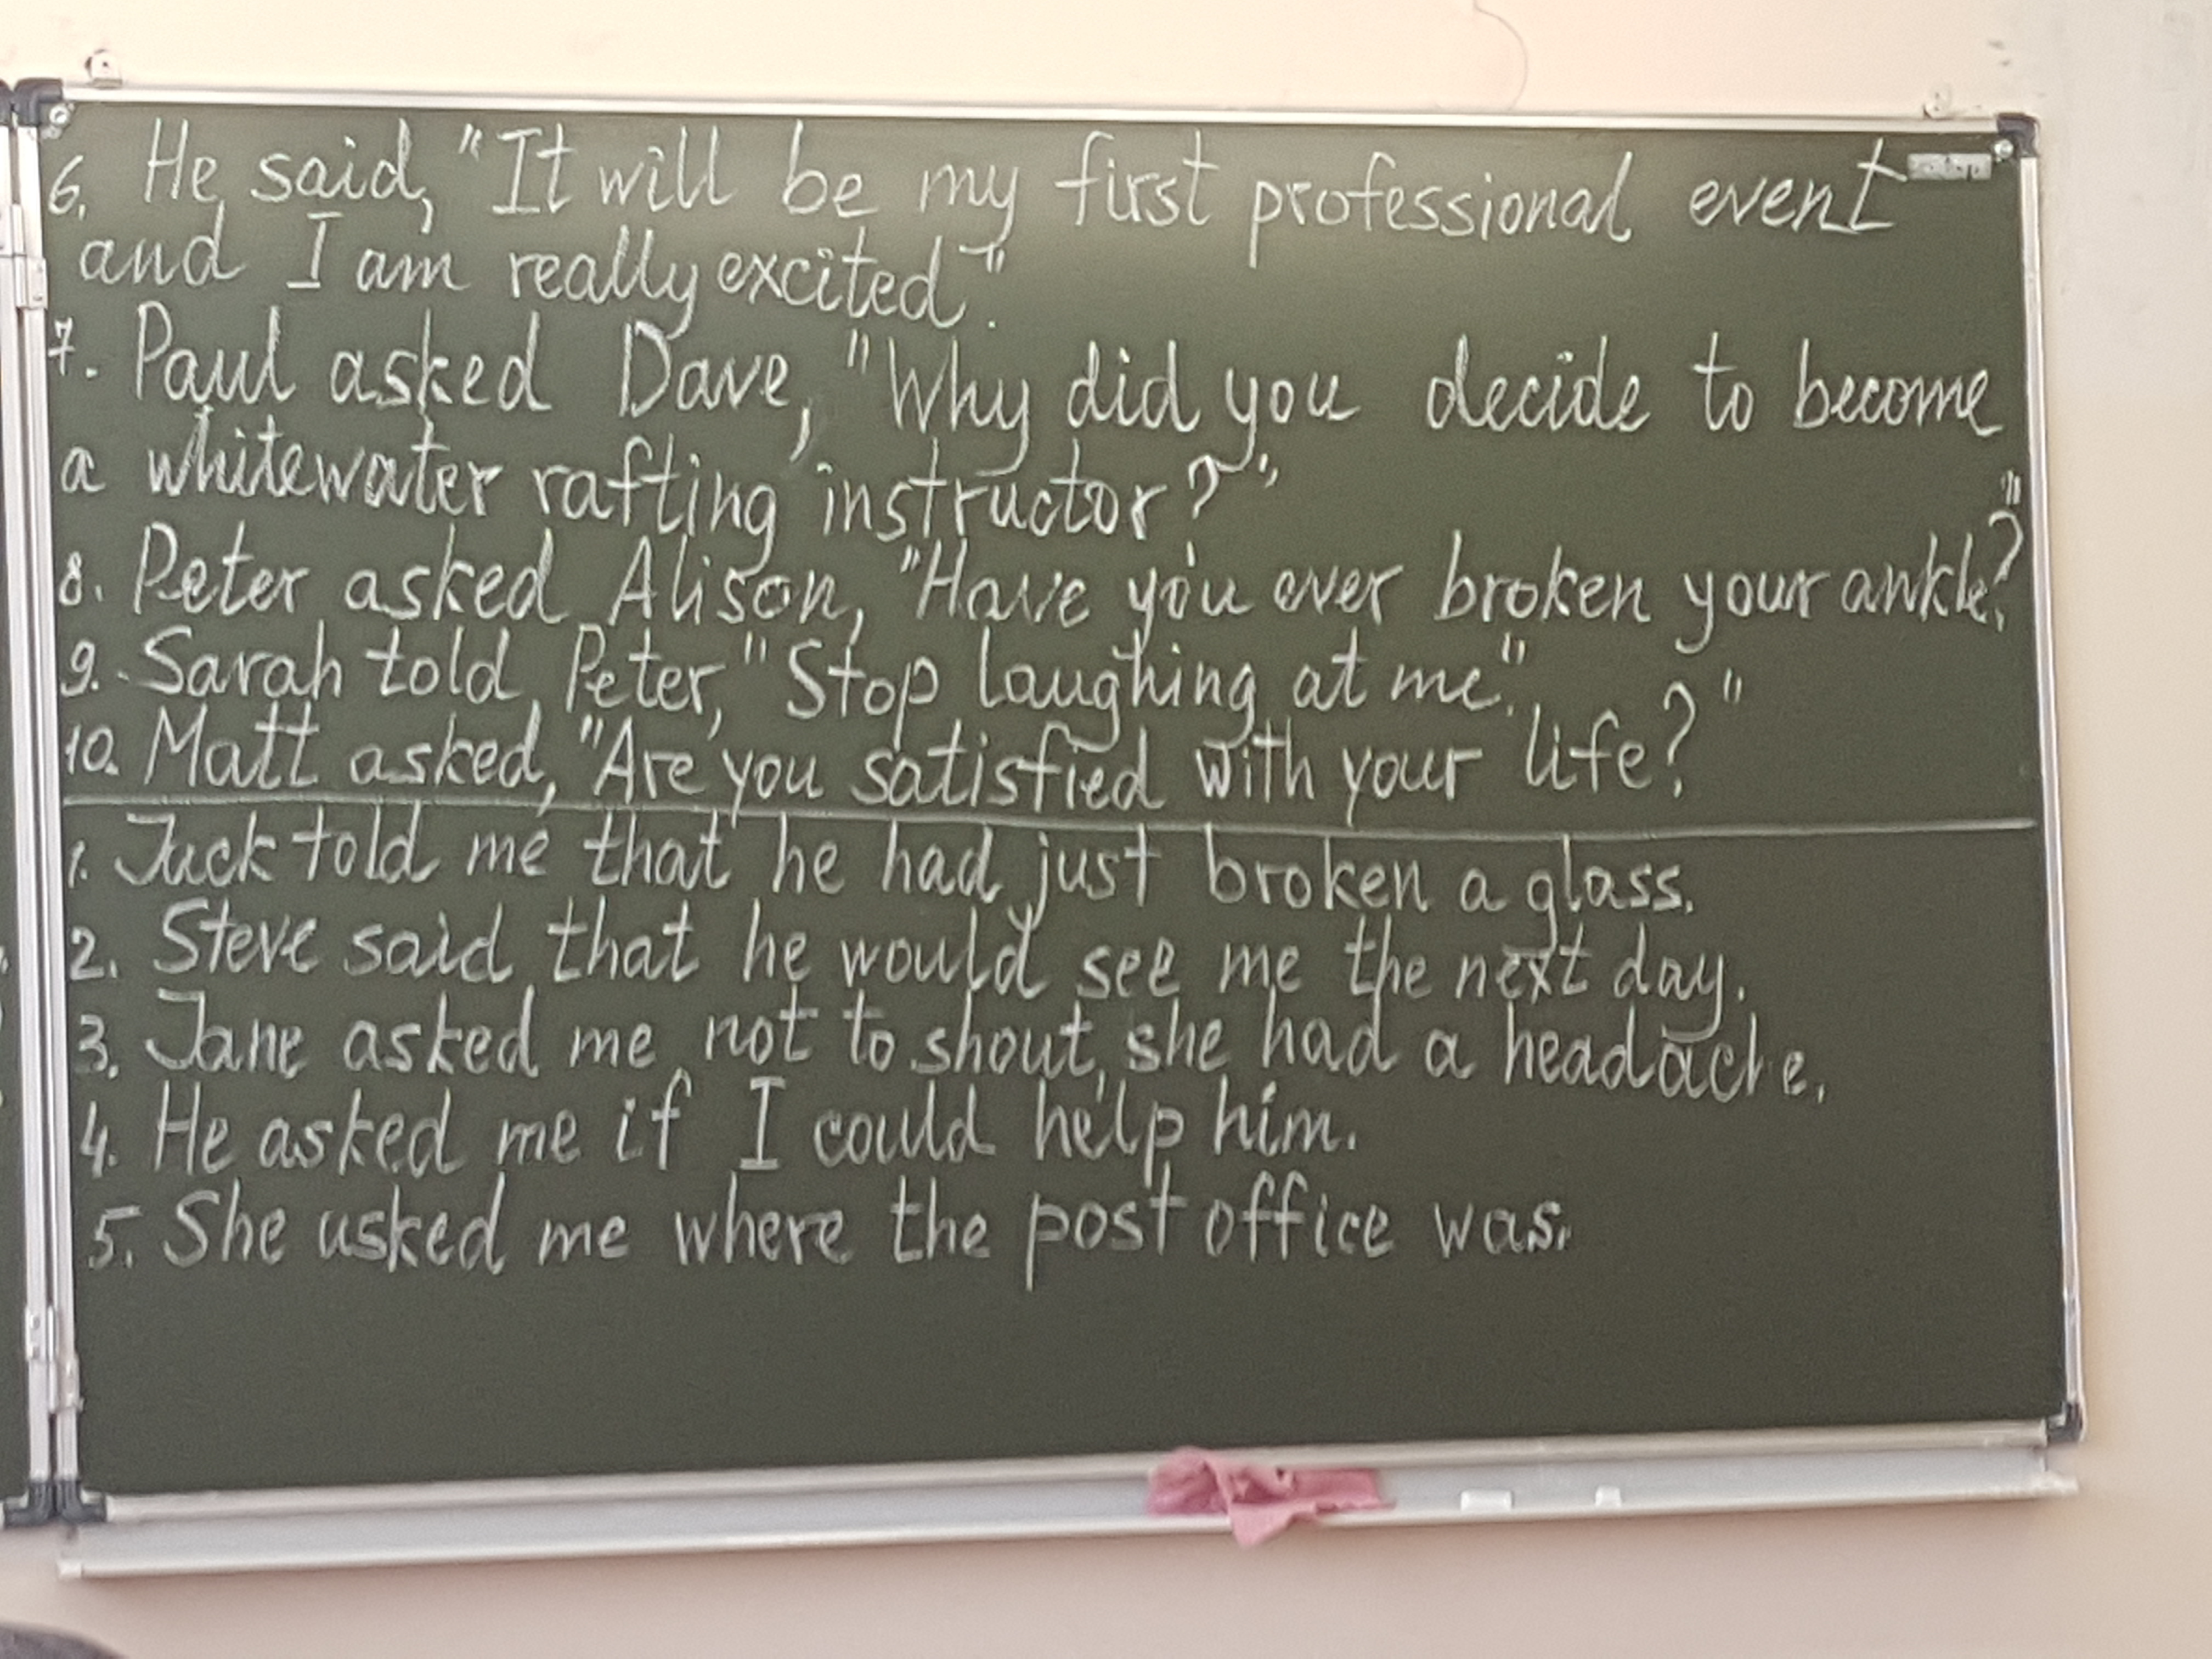 6. He said, "It will be my first professional event
and I am really excited".
7. Paul asked Dave, "Why did you decide to become
a whitewater rafting instructor?"
8. Peter asked Alison, "Have you ever broken your ankle?"
9. Sarah told Peter, "Stop laughing at me".
10. Matt asked, "Are you satisfied with your life?"
1. Jack told me that he had just broken a glass.
2. Steve said that he would see me the next day.
3. Jane asked me not to shout, she had a headache.
4. He asked me if I could help him.
5. She asked me where the post office was.